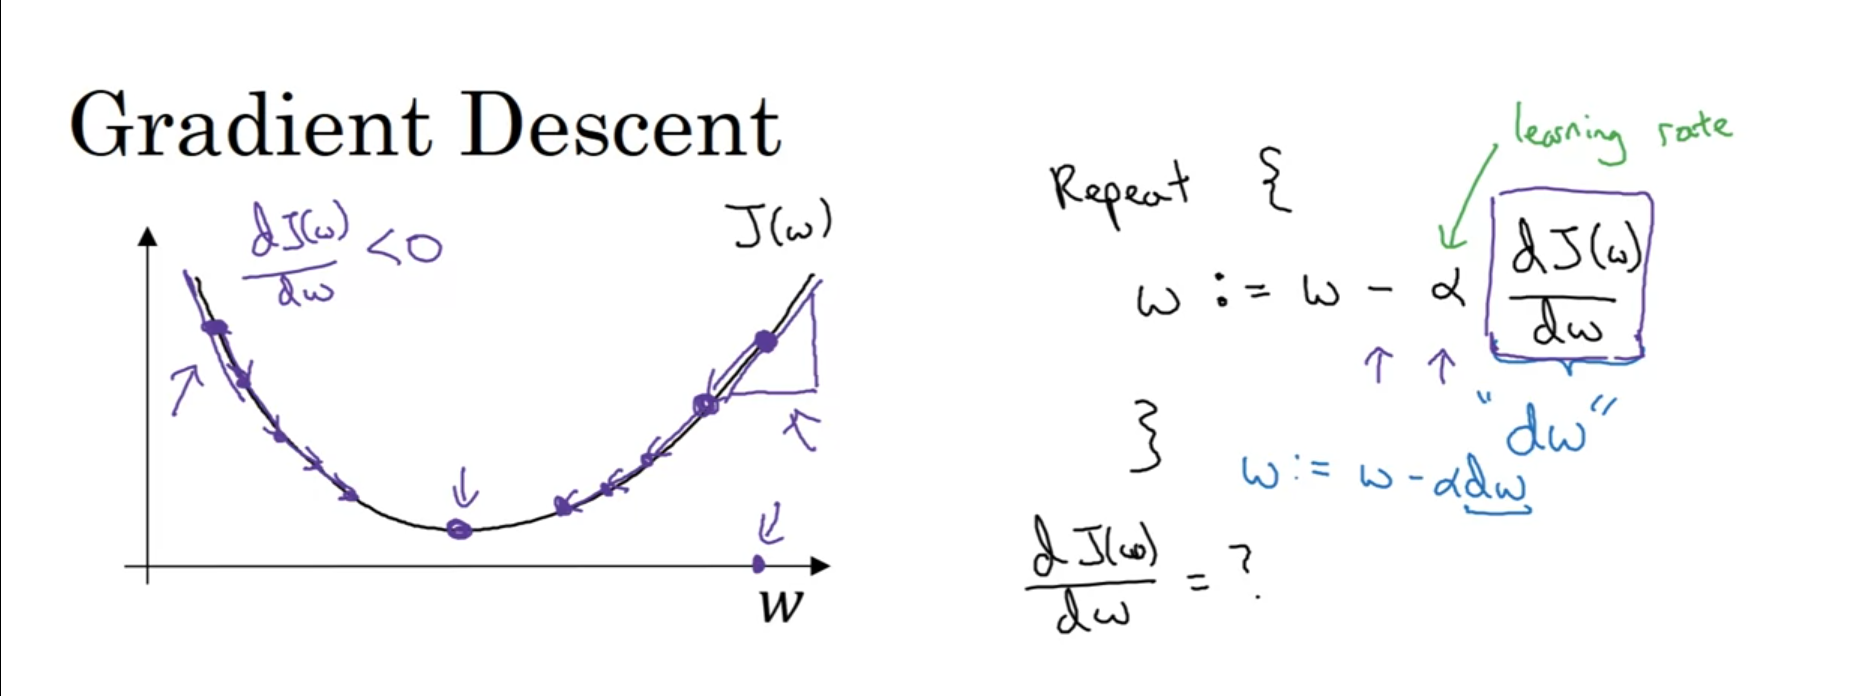 Gradient Descent
dJ(w)/dw <0
J(w)
w
learning rate
Repeat {
w := w - α dJ(w)/dw
"dw"
}
w := w - αdw
dJ(w)/dw = ?